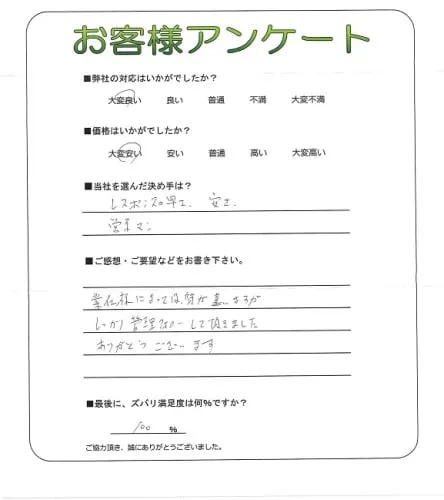 お客様アンケート
■弊社の対応はいかがでしたか？
大変良い 良い 普通 不満 大変不満
■価格はいかがでしたか？
大変安い 安い 普通 高い 大変高い
■当社を選んだ決め手は？
レスポンスの早さ、安さ、
営業マン
■ご感想・ご要望などをお書き下さい。
業者様によっては
しっかり管理 して頂きました
ありがとうございます
■最後に、ズバリ満足度は何%ですか？
100 %
ご協力頂き、誠にありがとうございました。